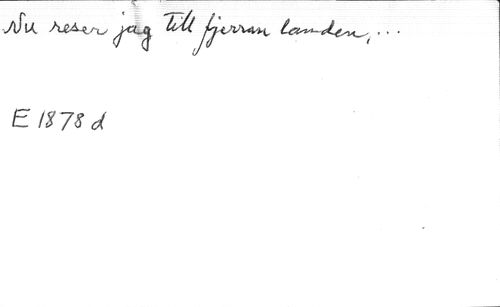 Nu reser jag till fjerran landen,...
E 1878 d